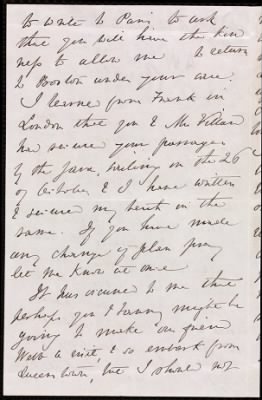 to write to Paris to ask
that you will have the kind
ness to allow me to return
to Boston under your care.
I learned from Frank in
London that you & Mr Villard
had secured your passages
by the Java, sailing on the 26
of October & I have written
& secured my berth in the
same. If you have made
any change of plan pray
let me know at once
It has occurred to me that
perhaps you & Fanny might be
going to make our friend
Webb a visit, & so embark from
Queenstown, but I should not